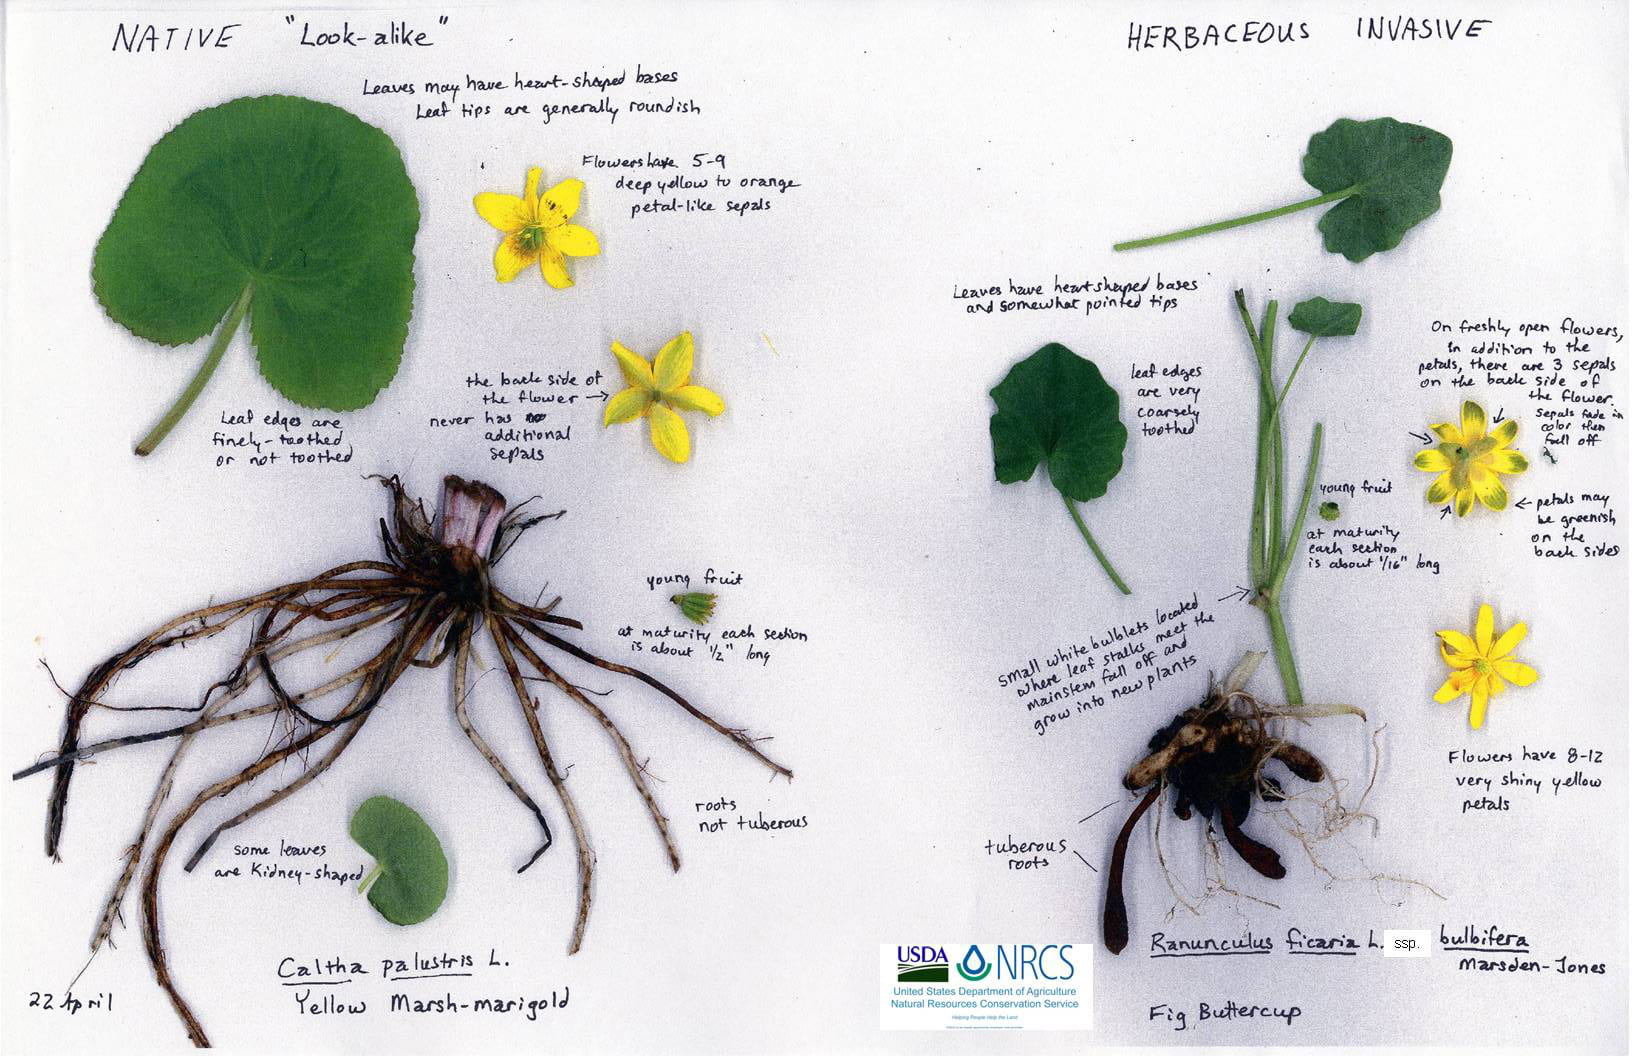 NATIVE "Look-alike"
Leaves may have heart-shaped bases
Leaf tips are generally roundish
Flowers have 5-9
deep yellow to orange
petal-like sepals
the back side of
the flower →
never has
additional
sepals
Leaf edges are
finely-toothed
or not toothed
young fruit
at maturity each section
is about 1/2" long
roots
not tuberous
some leaves
are Kidney-shaped
Caltha palustris L.
Yellow Marsh-marigold
22 April
HERBACEOUS INVASIVE
Leaves have heartshaped bases
and somewhat pointed tips
leaf edges
are very
coarsely
toothed
On freshly open flowers,
in addition to the
petals, there are 3 sepals
on the back side of
the flower.
Sepals fade in
color then
fall off
← petals may
be greenish
on the
back sides
young fruit
at maturity
each section
is about 1/16" long
small white bulblets located
where leaf stalks meet the
mainstem fall off and
grow into new plants
Flowers have 8-12
very shiny yellow
petals
tuberous
roots
Ranunculus ficaria L. ssp. bulbifera
Marsden-Jones
Fig Buttercup
USDA NRCS
United States Department of Agriculture
Natural Resources Conservation Service
Helping People Help the Land